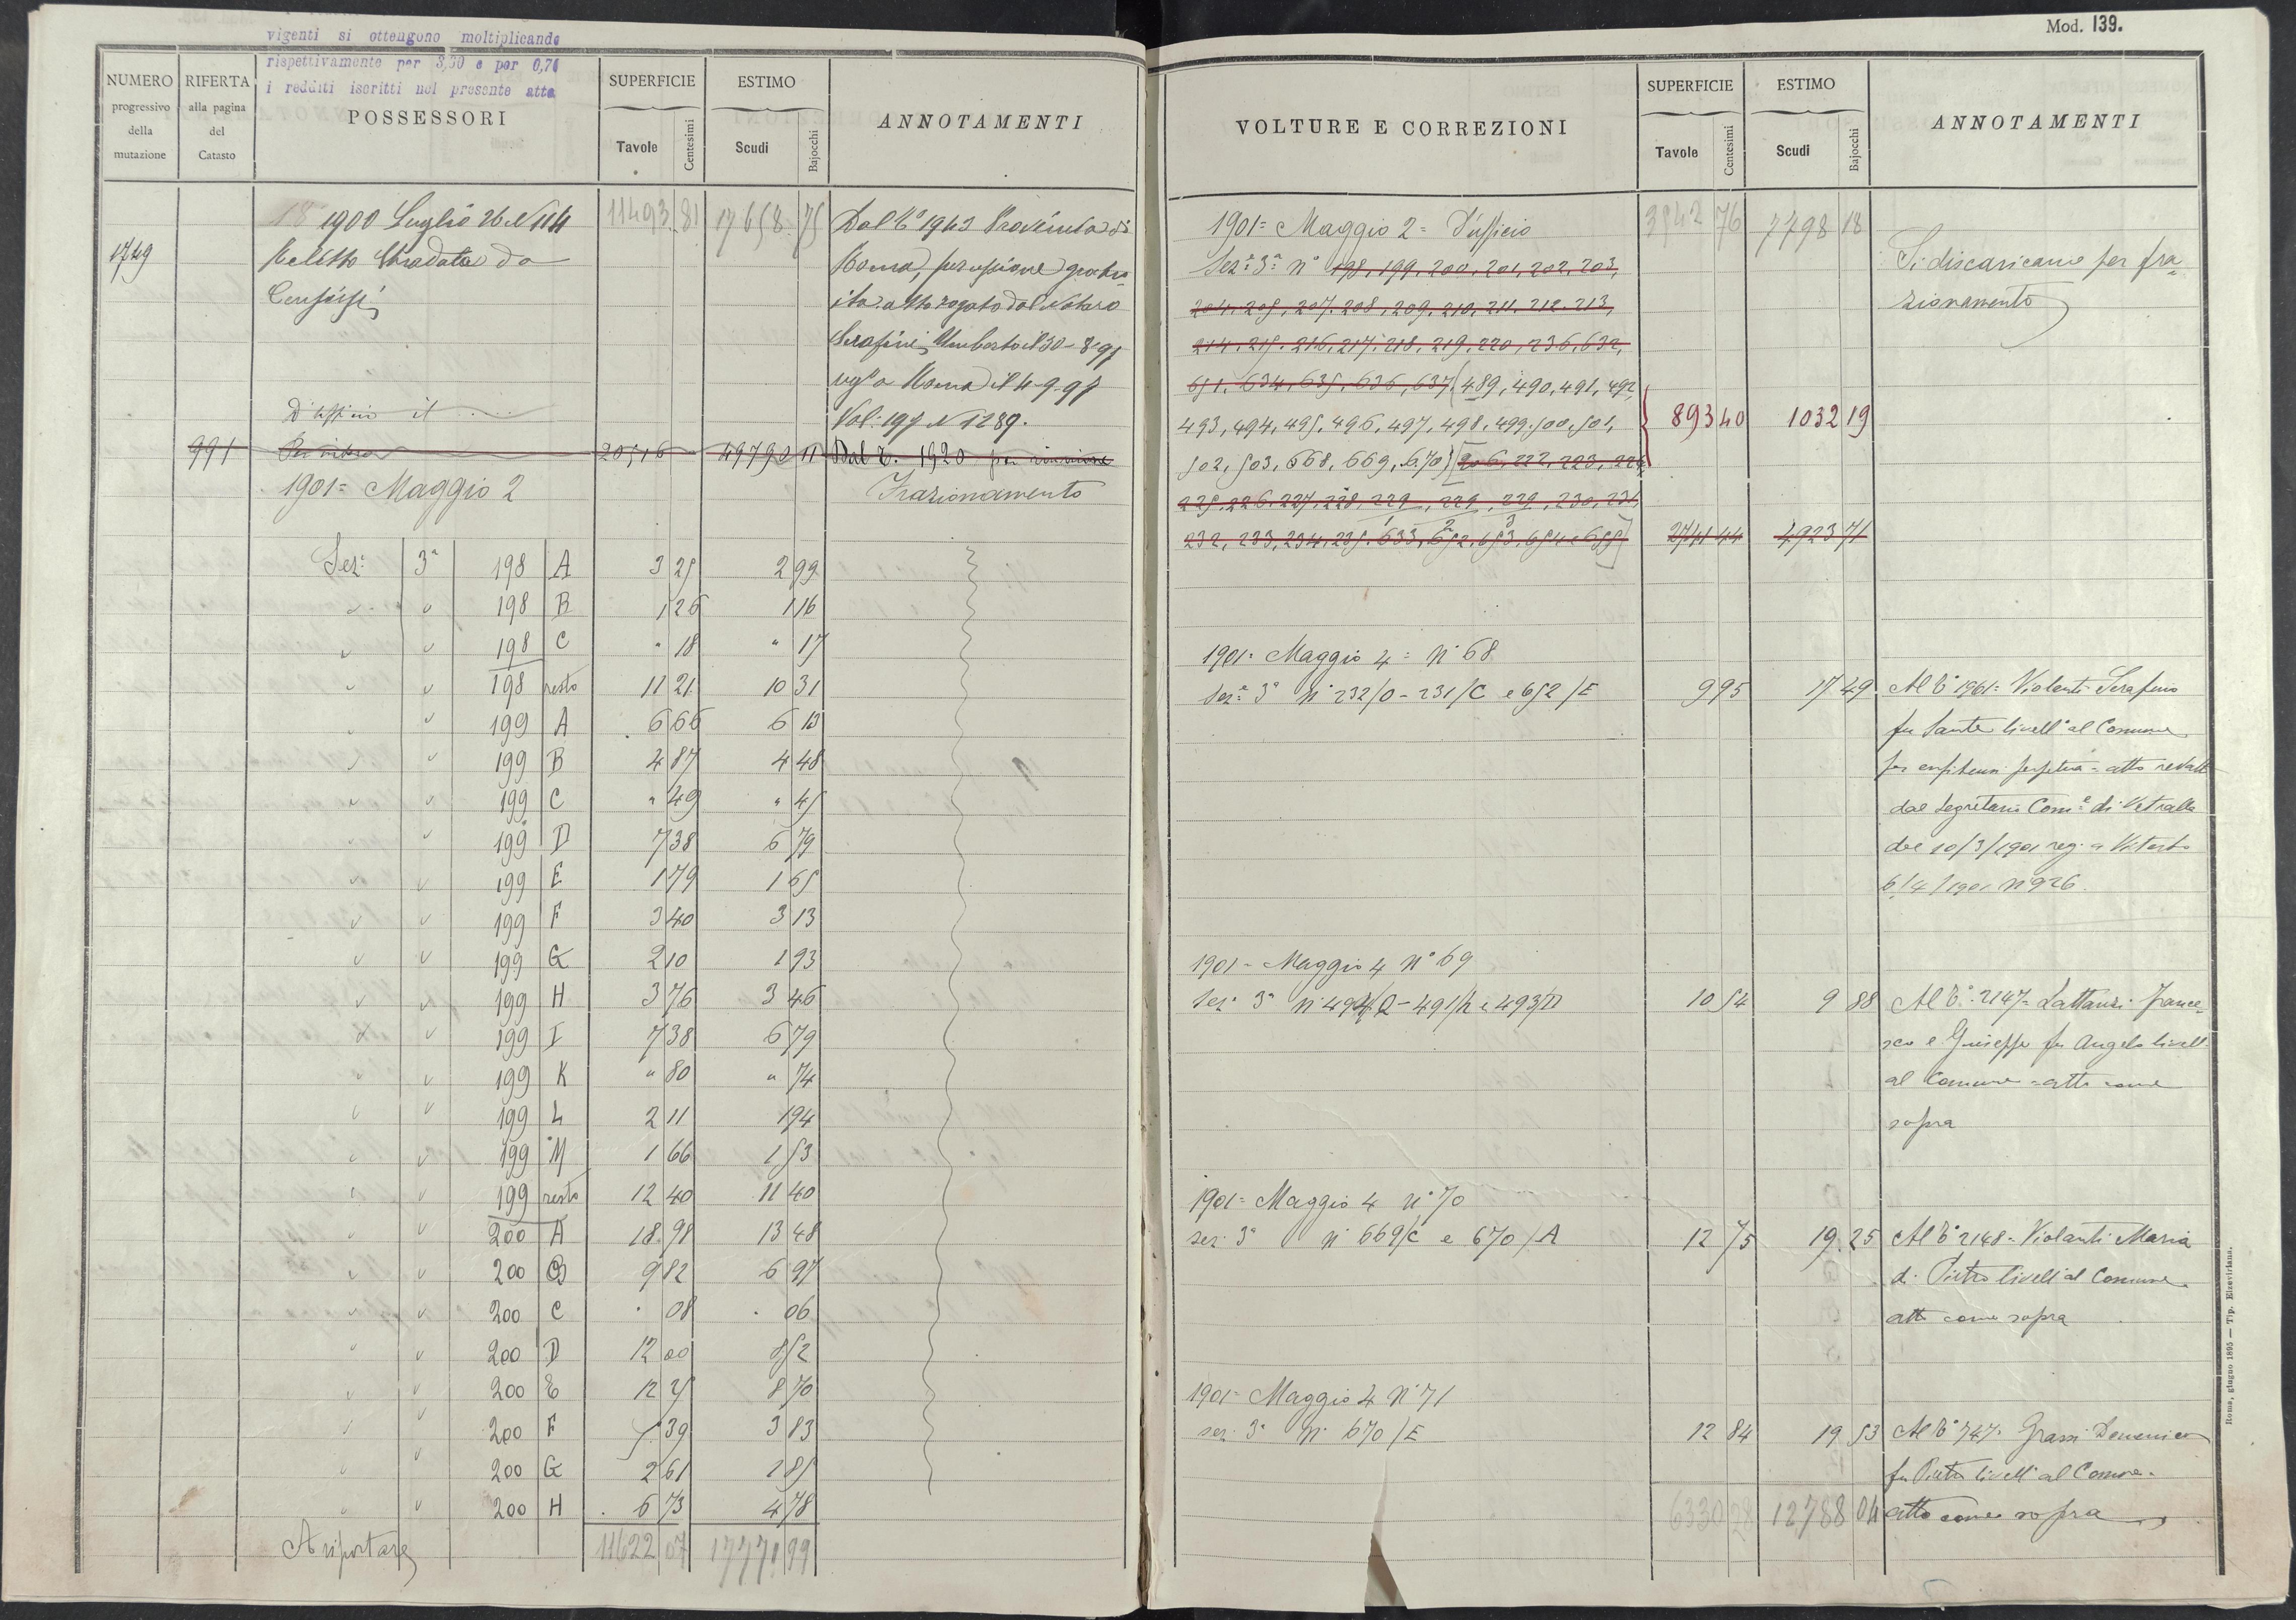 vigenti si ottengono moltiplicando
rispettivamente per 3,30 e per 0,71
i redditi iscritti nel presente atto
NUMERO progressivo della mutazione
RIFERTA alla pagina del Catasto
POSSESSORI
SUPERFICIE
Tavole Centesimi
ESTIMO
Scudi Bajocchi
ANNOTAMENTI
1900 Luglio 26 N 114 11493 81 17658 75
1749
Censirsi
Dal To 1943 Provincia di
Roma, per cessione gratu-
ita atto rogato dal Notaro
Serafini Umberto il 30-8-97
reg° a Roma il 4-9-97
Vol. 197 N 1289.
D'ufficio il
991 20516 49792 11 Dal T. 1920 per riunione
1901= Maggio 2 Frazionamento
Sez: 3ª 198 A 3 25 2 99
" " 198 B 1 26 1 16
" " 198 C " 18 " 17
" " 198 resto 11 21 10 31
" " 199 A 6 66 6 13
" " 199 B 4 87 4 48
" " 199 C " 49 " 45
" " 199 D 7 38 6 79
" " 199 E 1 79 1 65
" " 199 F 3 40 3 13
" " 199 G 2 10 1 93
" " 199 H 3 76 3 46
" " 199 I 7 38 6 79
" " 199 K " 80 " 74
" " 199 L 2 11 1 94
" " 199 M 1 66 1 53
" " 199 resto 12 40 11 40
" " 200 A 18 98 13 48
" " 200 B 9 82 6 97
" " 200 C . 08 . 06
" " 200 D 12 00 8 52
" " 200 E 12 25 8 70
" " 200 F 5 39 3 83
" " 200 G 2 61 1 85
" " 200 H 6 73 4 78
A riportare 11622 07 1777. 99
Mod. 139.
VOLTURE E CORREZIONI
SUPERFICIE
Tavole Centesimi
ESTIMO
Scudi Bajocchi
ANNOTAMENTI
1901= Maggio 2= D'ufficio 3542 76 7798 18
Sez.e 3ª n° 198, 199, 200, 201, 202, 203,
204, 205, 207, 208, 209, 210, 211, 212, 213,
214, 215, 216, 217, 218, 219, 220, 236, 632,
651, 634, 635, 636, 637, (489, 490, 491, 492,
493, 494, 495, 496, 497, 498, 499, 500, 501, 893 40 1032 19
502, 503, 668, 669, 670) [206, 222, 223, 224,
225, 226, 227, 228, 229/1, 229/2, 229/3, 230, 231,
232, 233, 234, 235, 633, 652, 653, 654 e 655] 2741 44 4923 71
Si discaricano per fra-
zionamento
1901= Maggio 4= N° 68
Sez.e 3ª N° 232/O - 231/C e 652/E 9 95 17 49
Al To 1961= Violanti Serafino
fu Sante livell° al Comune
per enfiteusi perpetua = atto redatto
dal Segretario Com.e di Vetralla
del 10/3/1901 reg. a Viterbo
6/4/1901 N° 926.
1901= Maggio 4 N° 69
Sez. 3ª N° 494/Q - 491/h e 493/D 10 54 9 88
Al To 2147= Lattanzi France-
sco e Giuseppe fu Angelo livell.
al Comune = atto come
sopra
1901= Maggio 4 N° 70
sez. 3ª N° 669/C e 670/A 12 75 19 25
Al To 2148= Violanti Maria
di Pietro livell° al Comune.
atto come sopra
1901= Maggio 4 N° 71
sez. 3ª N. 670/E 12 84 19 53
Al To 747= Grassi Domenico
fu Pietro livell° al Comune.
atto come sopra
6330 28 12788 04
Roma, giugno 1895 — Tip. Elzeviriana.